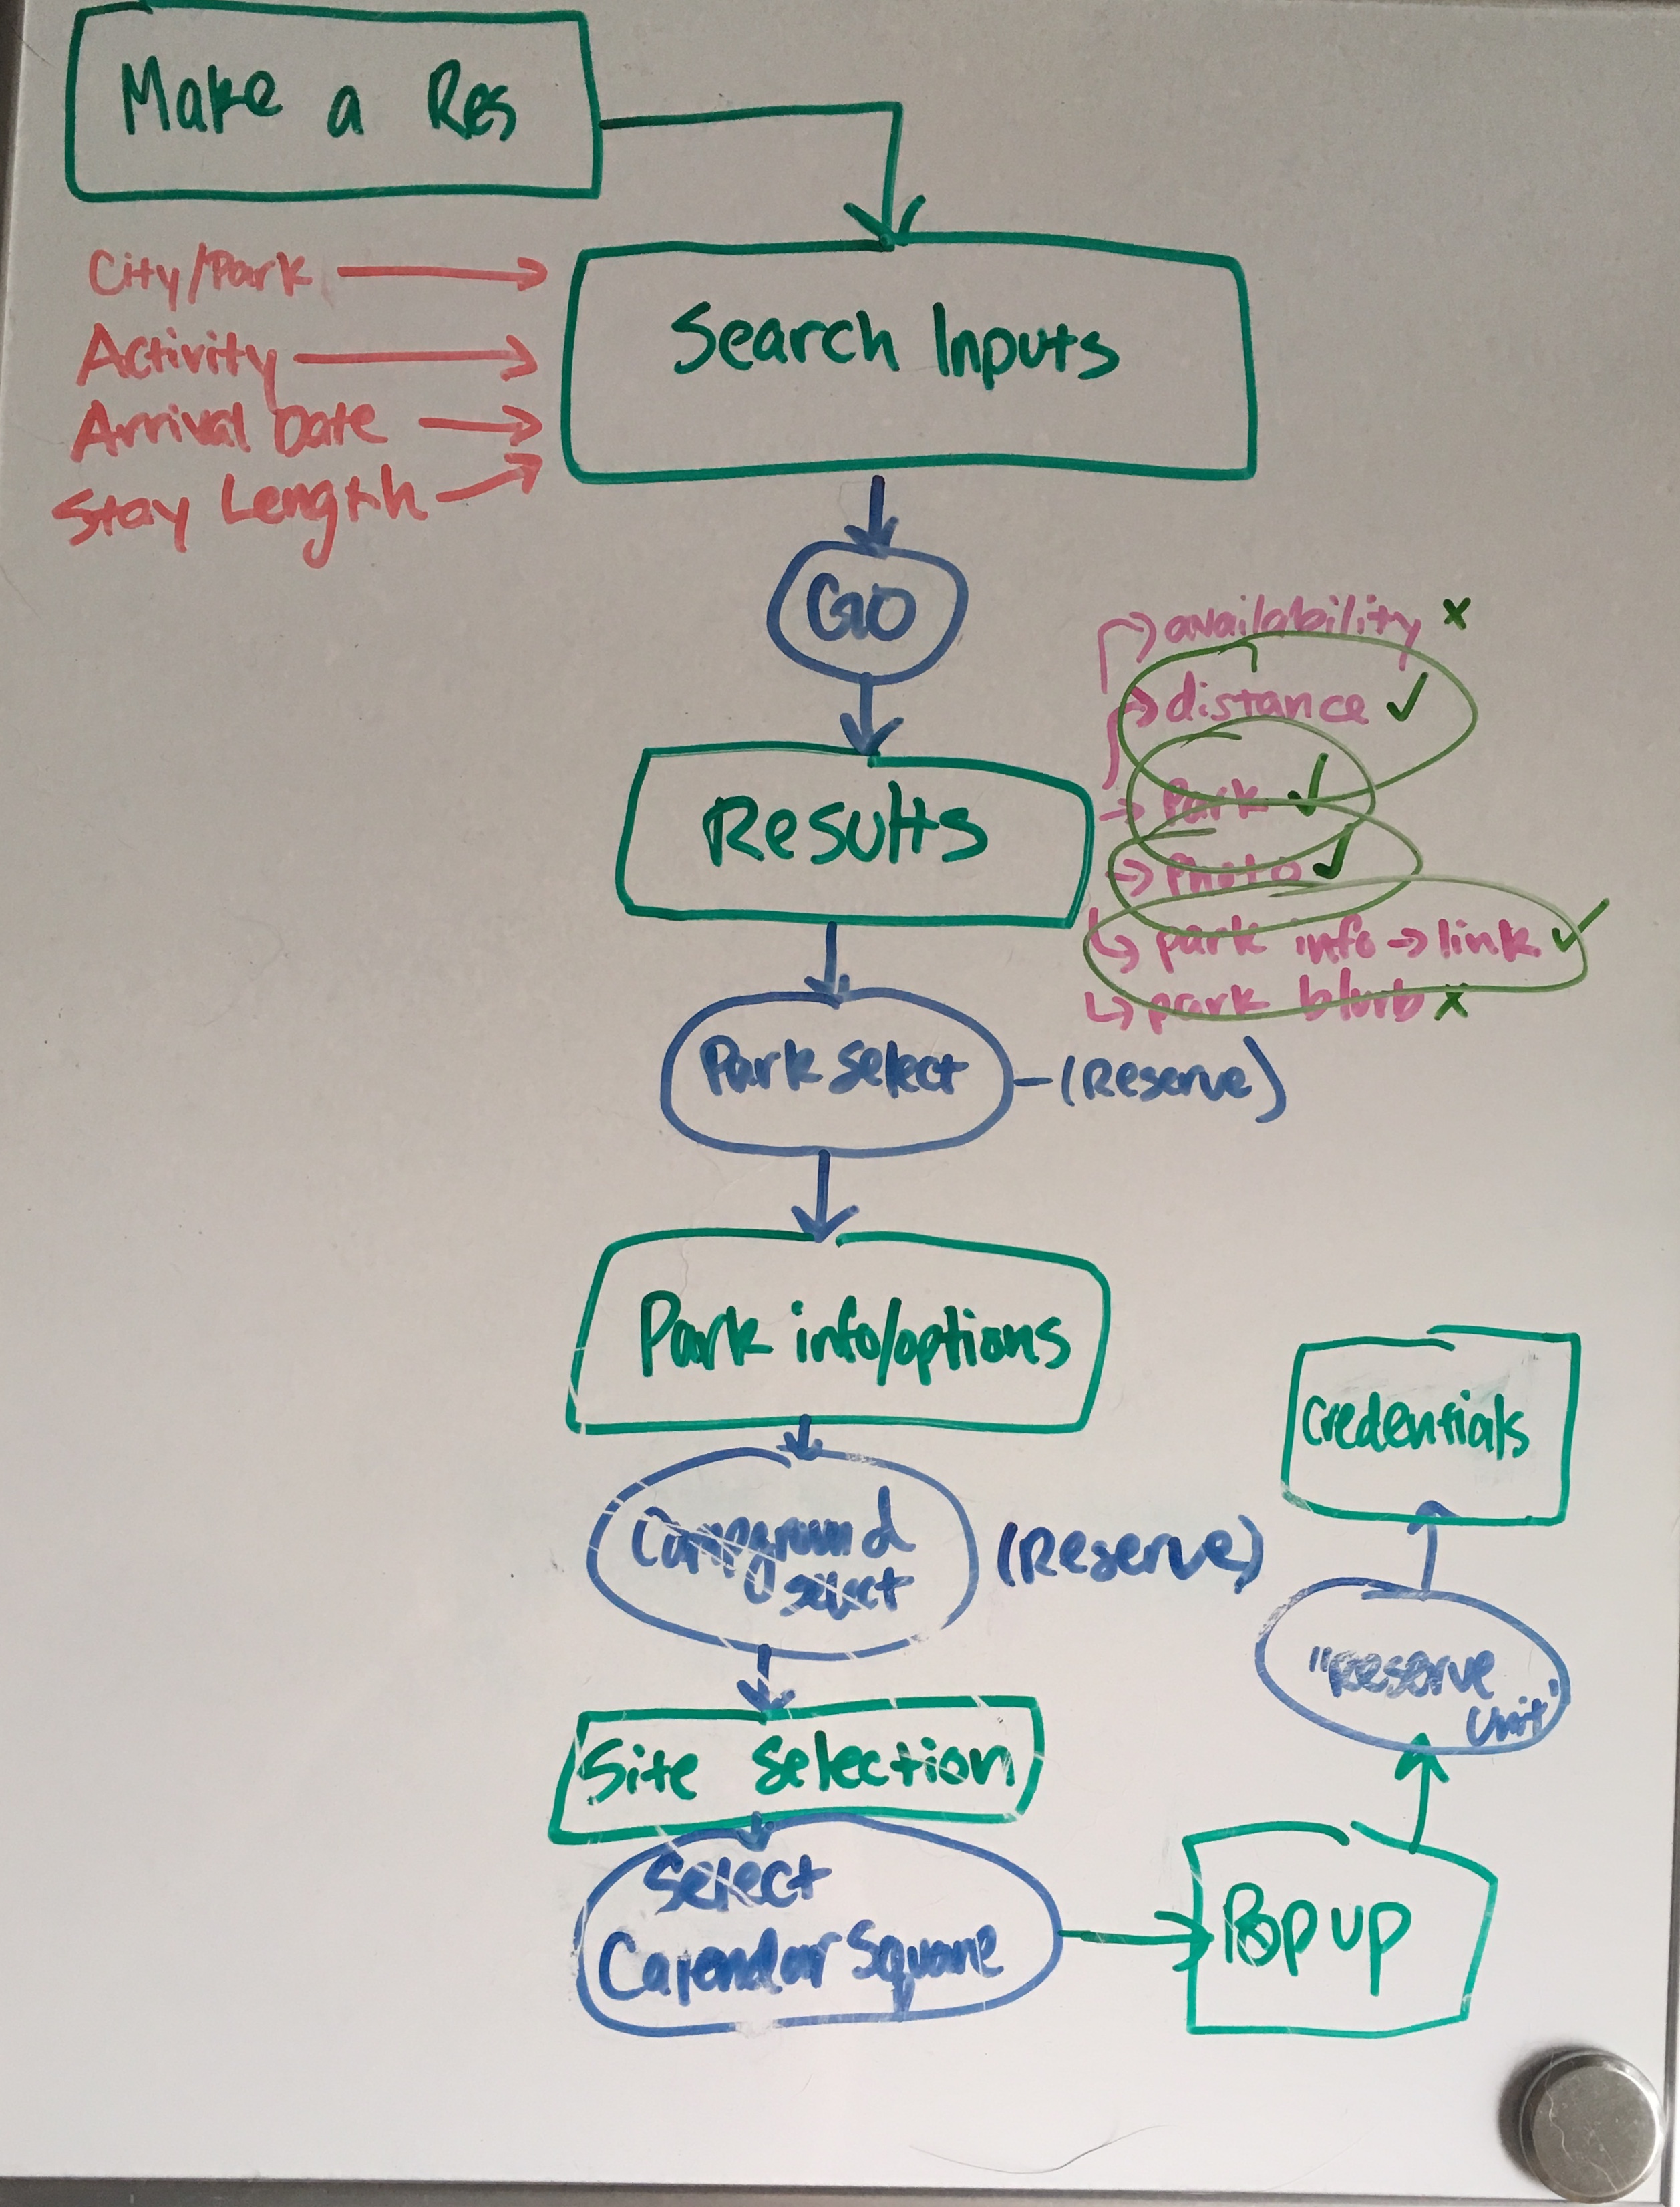 Make a Res
City/Park
Activity
Arrival Date
Stay Length
Search Inputs
GO
availability x
distance ✓
Park ✓
Photo ✓
park info → link ✓
park blurb x
Results
Park Select – (Reserve)
Park info/options
Campground
select
(Reserve)
Site Selection
Select
Calendar Square
Pop up
"Reserve
Unit"
Credentials